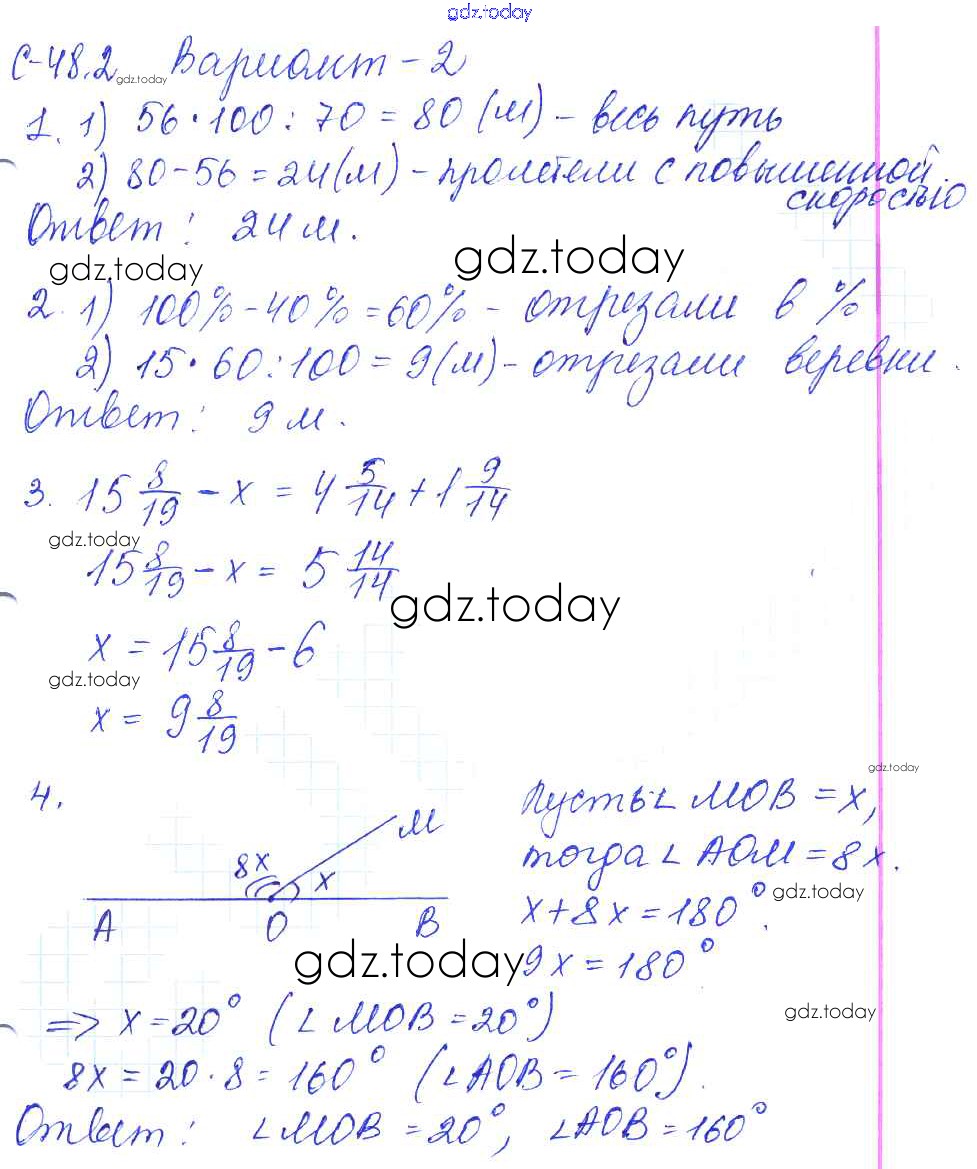 gdz.today
С-48.2 gdz.today Вариант - 2
1. 1) 56 · 100 : 70 = 80 (м) - весь путь
2) 80 - 56 = 24 (м) - пролетели с повышенной
скоростью
Ответ: 24 м.
gdz.today gdz.today
2. 1) 100% - 40% = 60% - отрезали в %
2) 15 · 60 : 100 = 9 (м) - отрезали веревки.
Ответ: 9 м.
3. 15 8/19 - x = 4 5/14 + 1 9/14
gdz.today
15 8/19 - x = 5 14/14
gdz.today
x = 15 8/19 - 6
gdz.today
x = 9 8/19
gdz.today
4.
M
8x
x
A O B
Пусть ∠ MOB = x,
тогда ∠ AOM = 8x.
gdz.today
x + 8x = 180°.
gdz.today
9x = 180°
gdz.today
=> x = 20° (∠ MOB = 20°)
8x = 20 · 8 = 160° (∠AOB = 160°).
Ответ: ∠MOB = 20°, ∠AOB = 160°